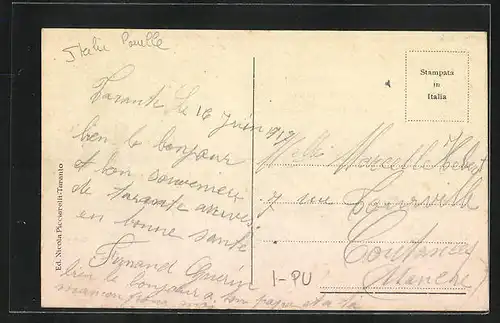 Italie Pouille
Stampata
in
Italia
Ed. Nicola Piccierelli-Taranto
Tarante Le 16 Juin 1917
bien le bonjour
et bon souvenir
de tarante arrivés
en bonne santé
Fernand Guerin
bien le bonjour a ton papa et a ta
maman
Melle Marcelle
7 rue Tourville
Coutances
Manche
1-PU